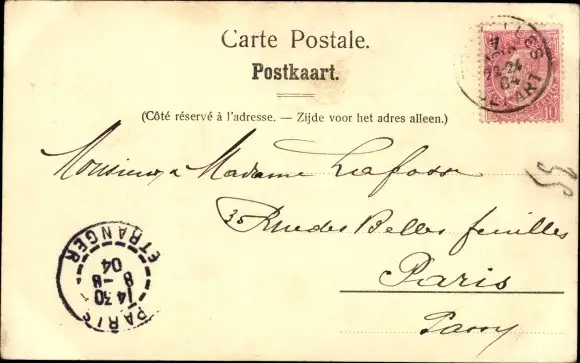 Carte Postale.
Postkaart.
(Côté réservé à l'adresse. — Zijde voor het adres alleen.)
Monsieur & Madame Lafosse
35 Rue des Belles feuilles
Paris
Passy
10
DEPART
PARIS
ETRANGER
14 30
8 - 8
04